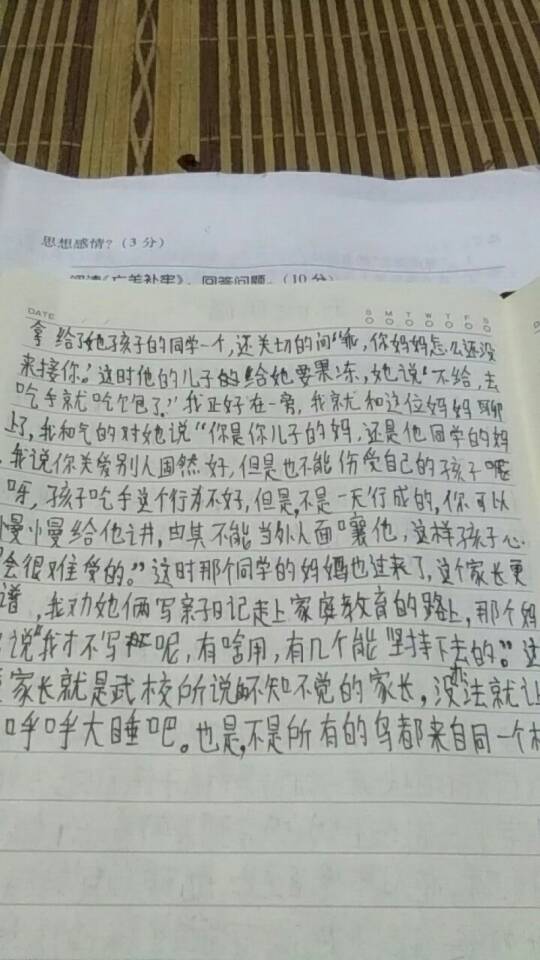 思想感情?(3分)
阅读《亡羊补牢》,回答问题。(10分)
DATE
S M T W T F S
拿给了她孩子的同学一个,还关切的问"乖,你妈妈怎么还没
来接你。"这时他的儿子的给她要果冻,她说"不给,去
吃手就吃饱了。"我正好在一旁,我就和这位妈妈聊
上了,我和气的对她说"你是你儿子的妈,还是他同学的妈
,我说你关爱别人固然好,但是也不能伤受自己的孩子呢
呀,孩子吃手这个行为不好,但是,不是一天行成的,你可以
慢慢给他讲,由其不能当外人面嚷他,这样孩子心
会很难受的。"这时那个同学的妈妈也过来了,这个家长更
谱,我劝她俩写亲子日记走上家庭教育的路上,那个妈
说"我才不写呢,有啥用,有几个能坚持下去的。"这
家长就是武校所说不知不觉的家长,没办法就让
呼呼大睡吧。也是,不是所有的鸟都来自同一个